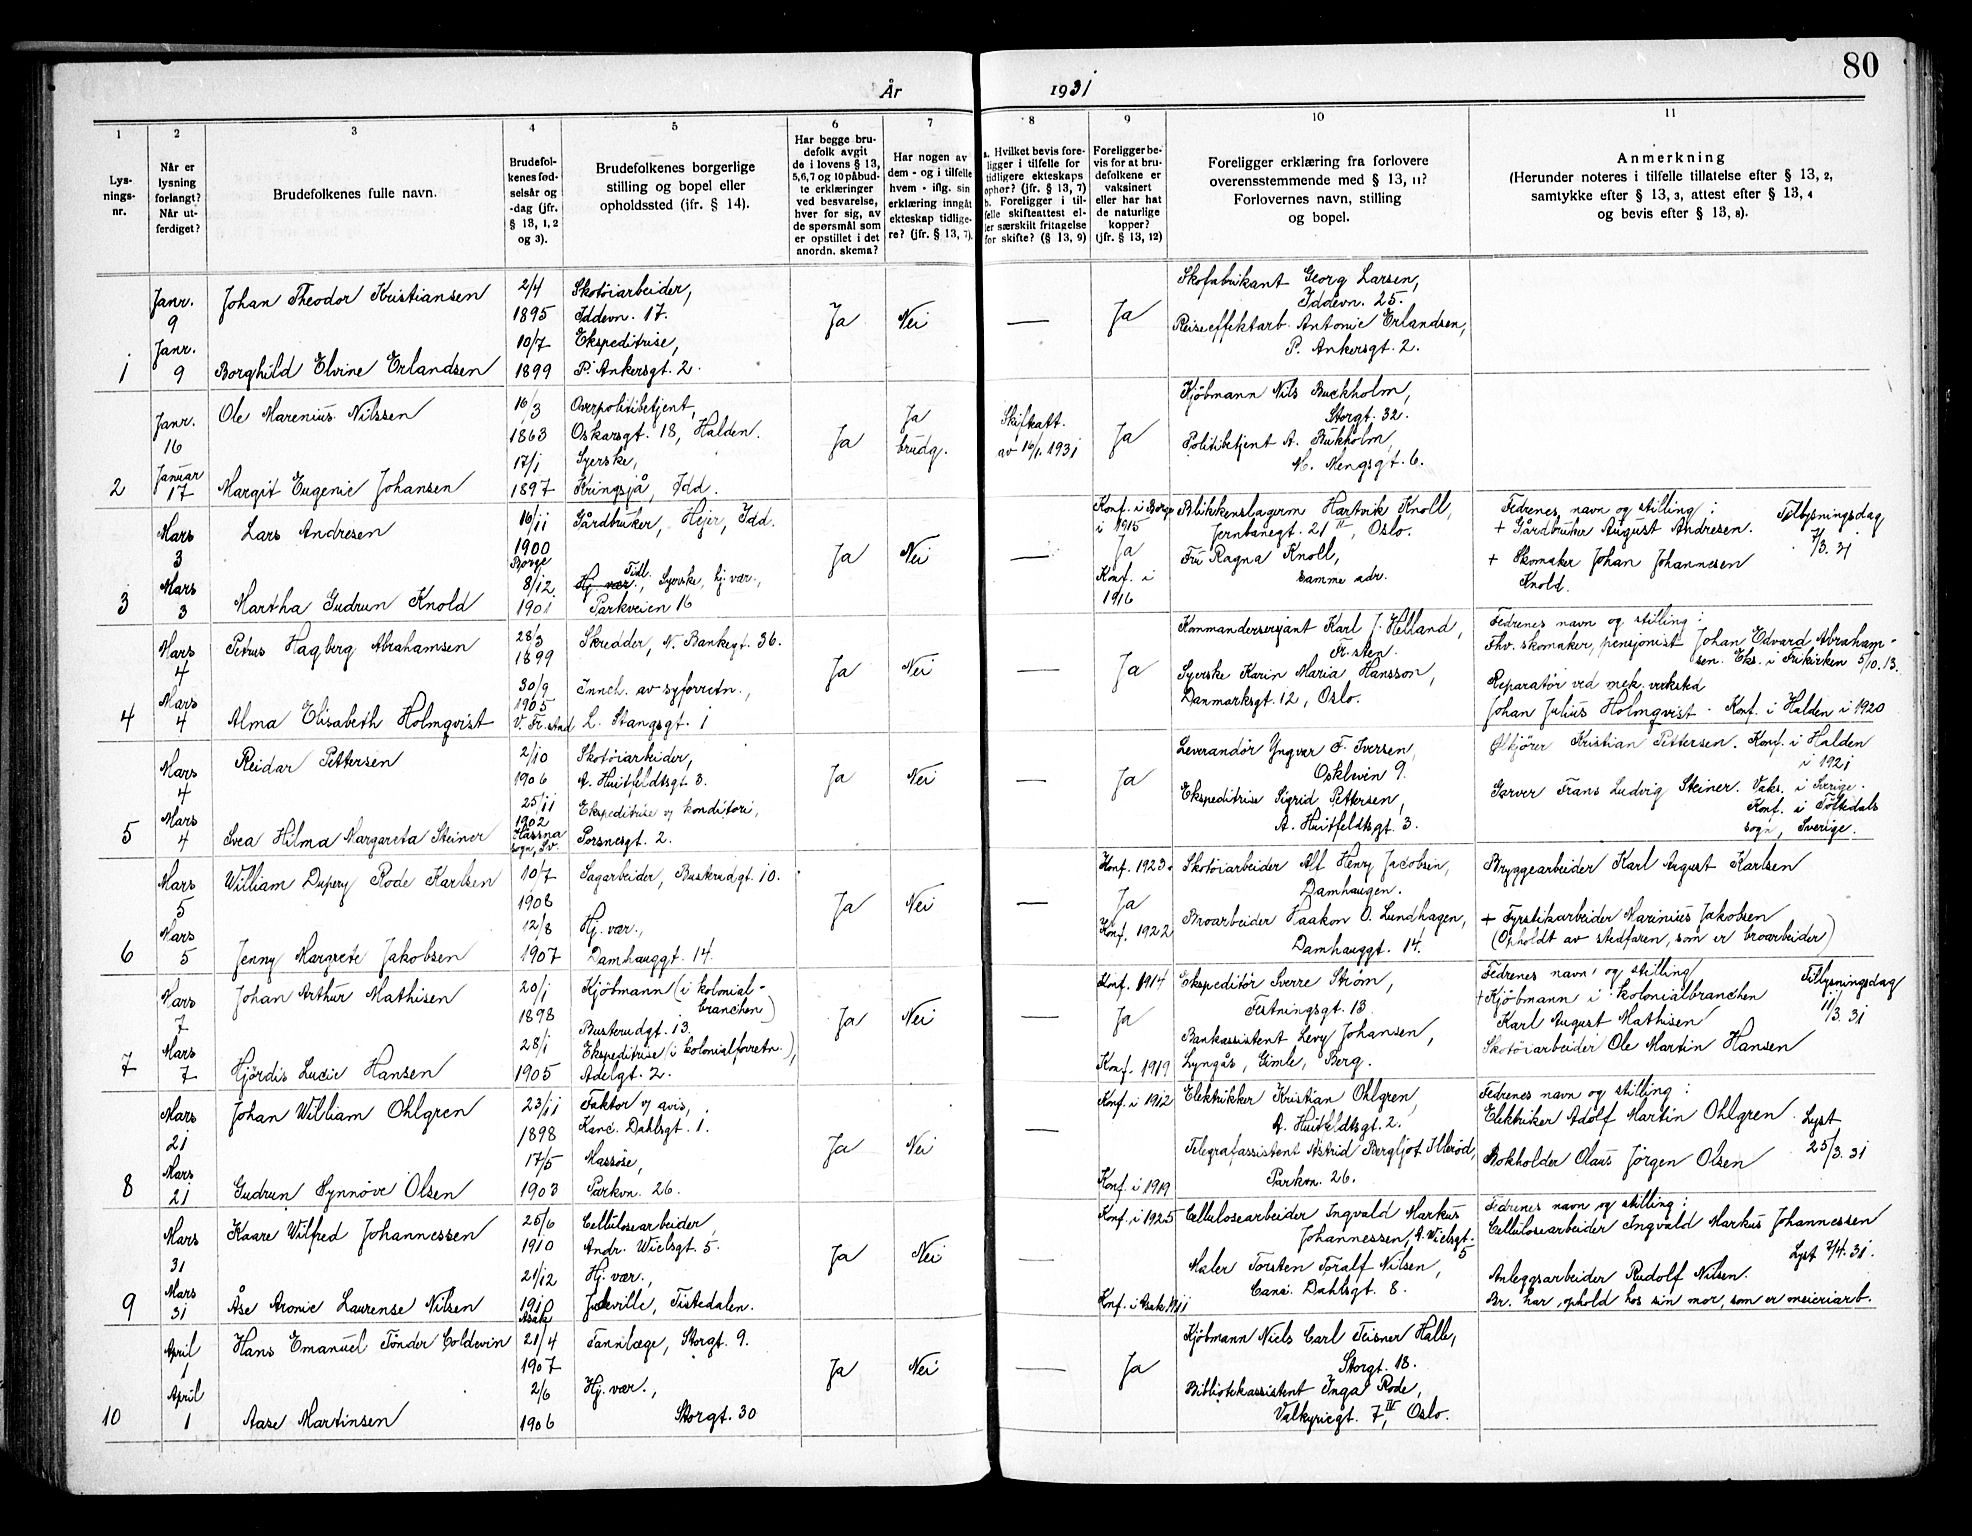 80
År 1931
1 2 3 4 5 6 7 8 9 10 11
Lys-
nings-
nr.
Når er
lysning
forlangt?
Når ut-
ferdiget?
Brudefolkenes fulle navn.
Brudefol-
kenes fød-
selsår og
-dag (jfr.
§ 13, 1, 2
og 3).
Brudefolkenes borgerlige
stilling og bopel eller
opholdssted (jfr. § 14).
Har begge bru-
defolk avgit
de i lovens § 13,
5, 6, 7 og 10 påbud-
te erklæringer
ved besvarelse,
hver for sig, av
de spørsmål som
er opstillet i det
anordn. skema?
Har nogen av
dem - og i tilfelle
hvem - iflg. sin
erklæring inngåt
ekteskap tidlige-
re? (jfr. § 13, 7).
a. Hvilket bevis fore-
ligger i tilfelle for
tidligere ekteskaps
ophør? (jfr. § 13, 7)
b. Foreligger i til-
felle skifteattest el-
ler særskilt fritagelse
for skifte? (§ 13, 9)
Foreligger be-
vis for at bru-
defolkene er
vaksinert
eller har hat
de naturlige
kopper?
(jfr. § 13, 12)
Foreligger erklæring fra forlovere
overensstemmende med § 13, 11?
Forlovernes navn, stilling
og bopel.
Anmerkning
(Herunder noteres i tilfelle tillatelse efter § 13, 2,
samtykke efter § 13, 3, attest efter § 13, 4
og bevis efter § 13, 8).
1
Janr.
9
Janr.
9
Johan Theodor Kristiansen
Borghild Elvine Erlandsen
2/4
1895
10/7
1899
Skotøiarbeider,
Iddevn. 17.
Ekspeditrise,
P. Ankersgt. 2.
Ja
Nei
—
Ja
Skofabrikant Georg Larsen,
Iddevn. 25.
Reiseeffektarb. Antonie Erlandsen,
P. Ankersgt. 2.
2
Janr.
16
Januar
17
Ole Marenius Nilssen
Margit Eugenie Johansen
16/3
1863
17/1
1897
Overpolitibetjent,
Oskarsgt. 18, Halden.
Syerske,
Kringsjå, Idd.
Ja
Ja
brudg.
Skifteatt.
av 16/1. 1931
Ja
Kjøbmann Nils Buckholm,
Storgt. 32.
Politibetjent A. Bukholm,
M. Mengsgt. 6.
3
Mars
3
Mars
3
Lars Andresen
Martha Gudrun Knold
16/11
1900
Borge
8/12.
1901
Gårdbruker, Hejer, Idd.
Tidl.
Hj. vær., Syerske, hj. vær.,
Parkveien 16
Ja
Nei
—
Konf. i Borge
i 1915
Ja
Konf. i
1916
Blikkenslagerm Hartvik Knoll,
Jernbanegt. 21 II, Oslo.
Fru Ragna Knoll,
samme adr.
Fedrenes navn og stilling:
+ Gårdbruker August Andresen.
+ Skomaker Johan Johannesen
Knold.
Tillysningsdag
7/3. 31
4
Mars
4
Mars
4
Petrus Hagberg Abrahamsen
Alma Elisabeth Holmqvist
28/3
1899
30/9
1905
V. Fr.stad
Skredder, N. Bankegt. 36.
Inneh. av syforretn.,
L. Stangsgt. 1
Ja
Nei
—
Ja
Kommandersersjant Karl J. Helland,
Fr.sten.
Syerske Karin Maria Hansson,
Danmarksgt. 12, Oslo.
Fedrenes navn og stilling:
Fhv. skomaker, pensjonist Johan Edvard Abraham-
sen. Eks. i Frikirken 5/10. 13.
Reparatør ved mek. verksted
Johan Julius Holmqvist. Konf. i Halden i 1920
5
Mars
4
Mars
4
Reidar Pettersen
Svea Hilma Margareta Steiner
2/10
1906
25/11
1902
Hassna
sogn, Sv.
Skotøiarbeider,
A. Huitfeldtsgt. 3.
Ekspeditrise v/ konditori,
Porsnesgt. 2.
Ja
Nei
—
Ja
Leverandør Yngvar F. Iversen,
Osklevin 9.
Ekspeditrise Sigrid Pettersen,
A. Huitfeldtsgt. 3.
Ølkjører Kristian Pettersen. Konf. i Halden
i 1921
Garver Frans Ludvig Steiner. Vaks. i Sverige.
Konf. i
sogn, Sverige.
6
Mars
5
Mars
5
William Dupery Rode Karlsen
Jenny Margrete Jakobsen
10/7
1908
12/8
1907
Sagarbeider, Buskrudgt. 10.
Hj. vær.,
Damhauggt. 14.
Ja
Nei
—
Konf. 1923.
Ja
Konf. 1922
Skotøiarbeider Alf Henry Jacobsen,
Damhaugen.
Broarbeider Haakon O. Lundhagen,
Damhauggt. 14.
Bryggearbeider Karl August Karlsen
+ Fyrstikarbeider Marinius Jakobsen
(Opholdt av stedfaren, som er broarbeider)
7
Mars
7
Mars
7
Johan Arthur Mathisen
Hjördis Lucie Hansen
20/1
1898
28/1
1905
Kjøbmann (i kolonial-
branchen)
Busterudgt. 13.
Ekspeditrise (i kolonialforretn.),
Adelgt. 2.
Ja
Nei
—
Konf. 1914
Ja
Konf. 1919
Ekspeditør Sverre Strøm,
Festningsgt. 13.
Bankassistent Levy Johansen,
Lyngås, Gimle, Berg.
Fedrenes navn og stilling
+ Kjøbmann i kolonialbranchen
Karl August Mathisen
Skotøiarbeider Ole Martin Hansen
Tillysningsdag
11/3. 31
8
Mars
21
Mars
21
Johan William Ohlgren
Gudrun Synnøve Olsen
23/11
1898
17/5
1903
Faktor v/ avis,
Kanc. Dahlsgt. 1.
Massøse,
Parkvn. 26.
Ja
Nei
—
Konf. i 1912
Konf. i 1919
Elektrikker Kristian Ohlgren,
A. Huitfeldtsgt. 2.
Telegrafassistent Astrid Bergljot Illerød,
Parkvn. 26.
Fedrenes navn og stilling:
Elektriker Adolf Martin Ohlgren.
Bokholder Olaus Jørgen Olsen
Lyst
25/3. 31
9
Mars
31
Mars
31
Kaare Wilfred Johannessen
Åse Aronie Laurense Nilsen
25/6
1910
21/12
1910
Asak
Cellulosearbeider,
Andr. Wielsgt. 5.
Hj. vær.,
Tistedalen.
Ja
Nei
—
Konf. i 1925
Konf. i Asak
Cellulosearbeider Ingvald Markus
Johannessen, A. Wielsgt.
5
Maler Torsten Toralf Nilsen,
Canc. Dahlsgt. 8.
Fedrenes navn og stilling:
Cellulosearbeider Ingvald Markus Johannessen
Lyst 7/4. 31.
Anleggsarbeider Rudolf Nilsen.
Br. har ophold hos sin mor, som er meieriarb.
10
April
1
April
1
Hans Emanuel Tønder Coldevin
Aase Martinsen
21/4
1907
2/6
1906
Tannlæge, Storgt. 9.
Hj. vær.,
Storgt. 30
Ja
Nei
—
Ja
Kjøbmann Niels Carl Teisner Halle,
Storgt. 18.
Bibliotekassistent Inga Rode,
Valkyriegt. 7 IV, Oslo.